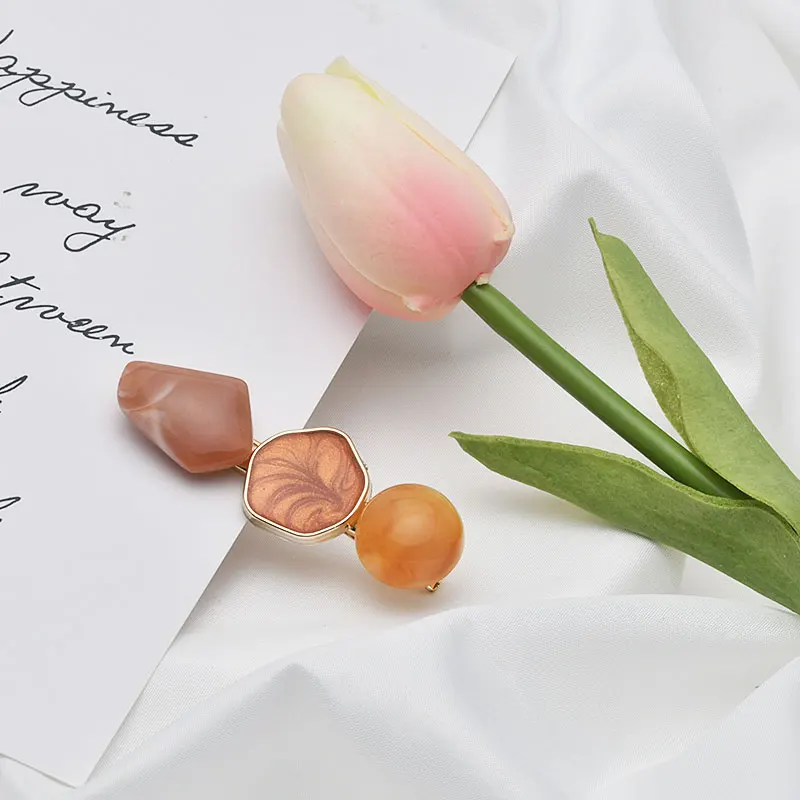 appiness
way
tween